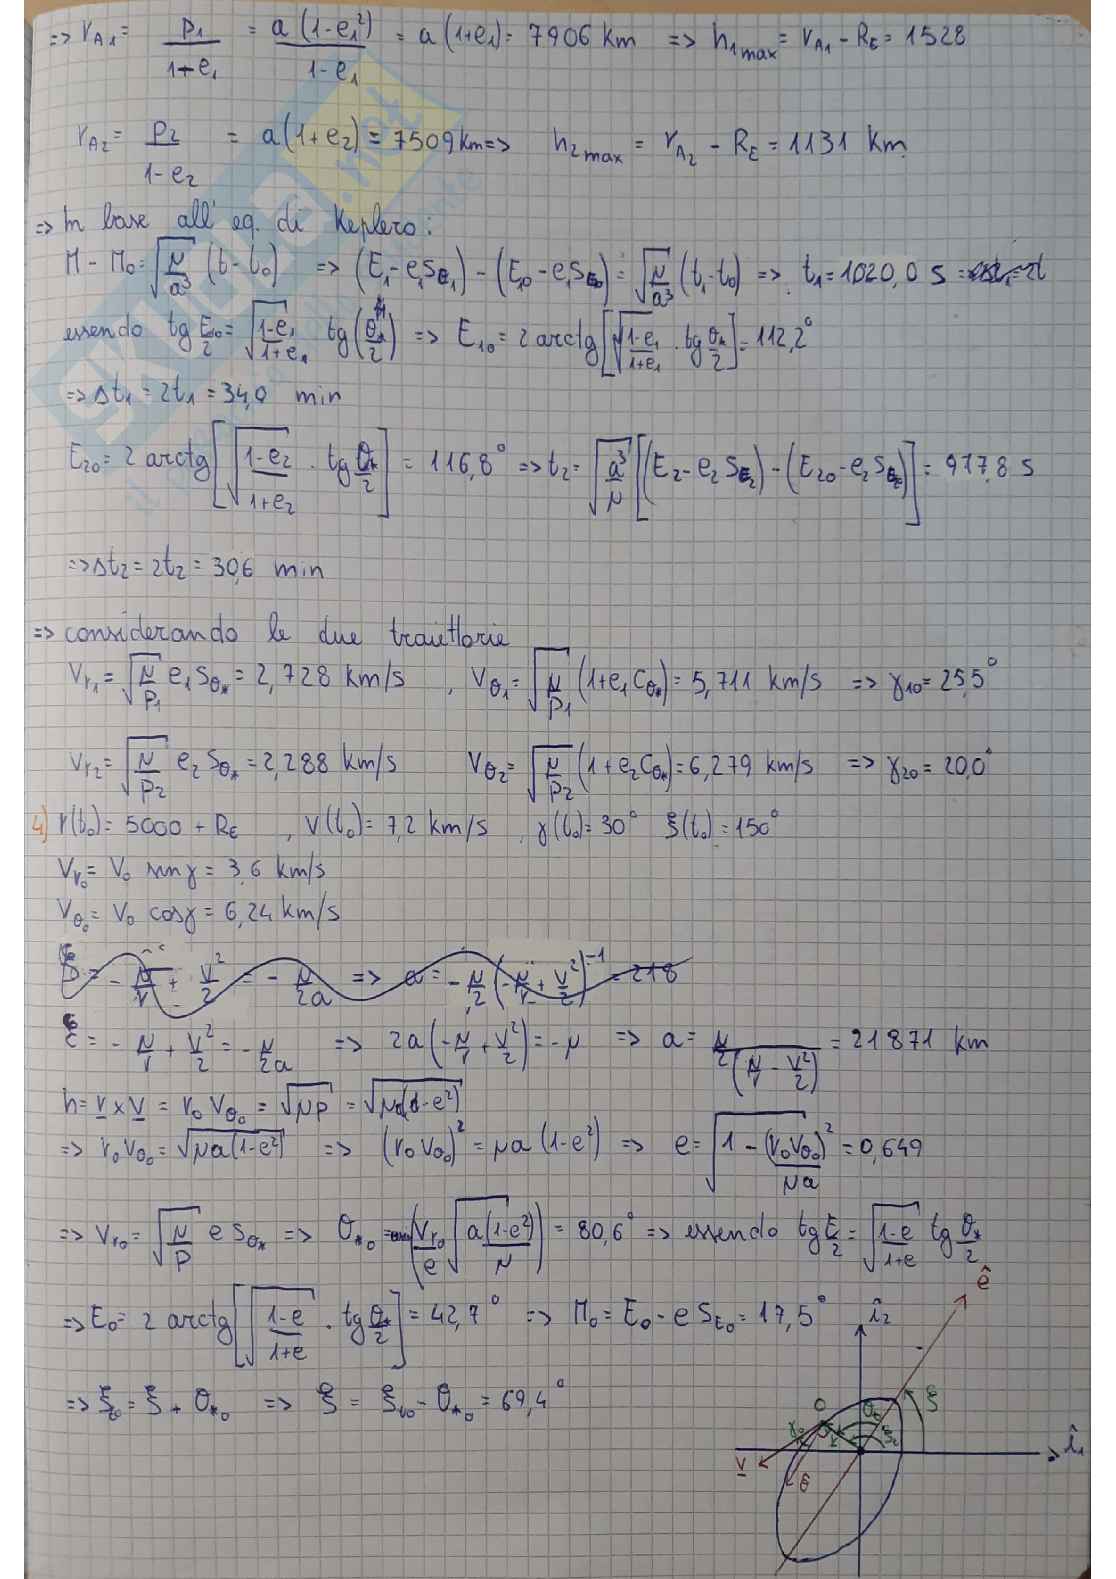 => r_A1 = p1/(1+e1) = a(1-e1²)/(1-e1) = a(1+e1) = 7906 km => h1max = r_A1 - R_E = 1528
r_A2 = p2/(1-e2) = a(1+e2) = 7509 km => h2max = r_A2 - R_E = 1131 km
=> In base all'eq. di Keplero:
M - M0 = √(μ/a³) (t-t0) => (E1 - e1 s_E1) - (E10 - e1 s_E10) = √(μ/a³) (t1-t0) => t1 = 1020,0 s
essendo tg E10/2 = √((1-e1)/(1+e1)) tg(θ*/2) => E10 = 2 arctg[√((1-e1)/(1+e1)) · tg θ*/2] = 112,2°
=> Δt1 = 2t1 = 34,0 min
E20 = 2 arctg[√((1-e2)/(1+e2)) · tg θ*/2] = 116,8° => t2 = √(a³/μ) [(E2 - e2 s_E2) - (E20 - e2 s_E20)] = 917,8 s
=> Δt2 = 2t2 = 30,6 min
=> considerando le due traiettorie
Vr1 = √(μ/p1) e1 s_θ* = 2,728 km/s , Vθ1 = √(μ/p1) (1+e1 c_θ*) = 5,711 km/s => γ10 = 25,5°
Vr2 = √(μ/p2) e2 s_θ* = 2,288 km/s Vθ2 = √(μ/p2) (1+e2 c_θ*) = 6,279 km/s => γ20 = 20,0°
4) r(t0) = 5000 + R_E , V(t0) = 7,2 km/s , γ(t0) = 30° ξ(t0) = 150°
Vr0 = V0 sin γ = 3,6 km/s
Vθ0 = V0 cos γ = 6,24 km/s
= -μ/r + V²/2 = -μ/2a => a = -μ/2 (-μ/r + V²/2)⁻¹ = 218
ε = -μ/r + V²/2 = -μ/2a => 2a(-μ/r + V²/2) = -μ => a = μ/(2(μ/r - V²/2)) = 21871 km
h = r x v = r0 Vθ0 = √(μp) = √(μa(1-e²))
=> r0 Vθ0 = √(μa(1-e²)) => (r0 Vθ0)² = μa(1-e²) => e = √(1 - (r0 Vθ0)²/μa) = 0,649
=> Vr0 = √(μ/p) e s_θ* => θ*0 = (Vr0/e √(a(1-e²)/μ)) = 80,6° => essendo tg E/2 = √((1-e)/(1+e)) tg θ*/2
=> E0 = 2 arctg[√((1-e)/(1+e)) · tg θ*/2] = 42,7° => M0 = E0 - e s_E0 = 17,5°
=> ξ0 = ξ + θ*0 => ξ = ξ0 - θ*0 = 69,4°
ê
î2
ξ
î1
v
θ